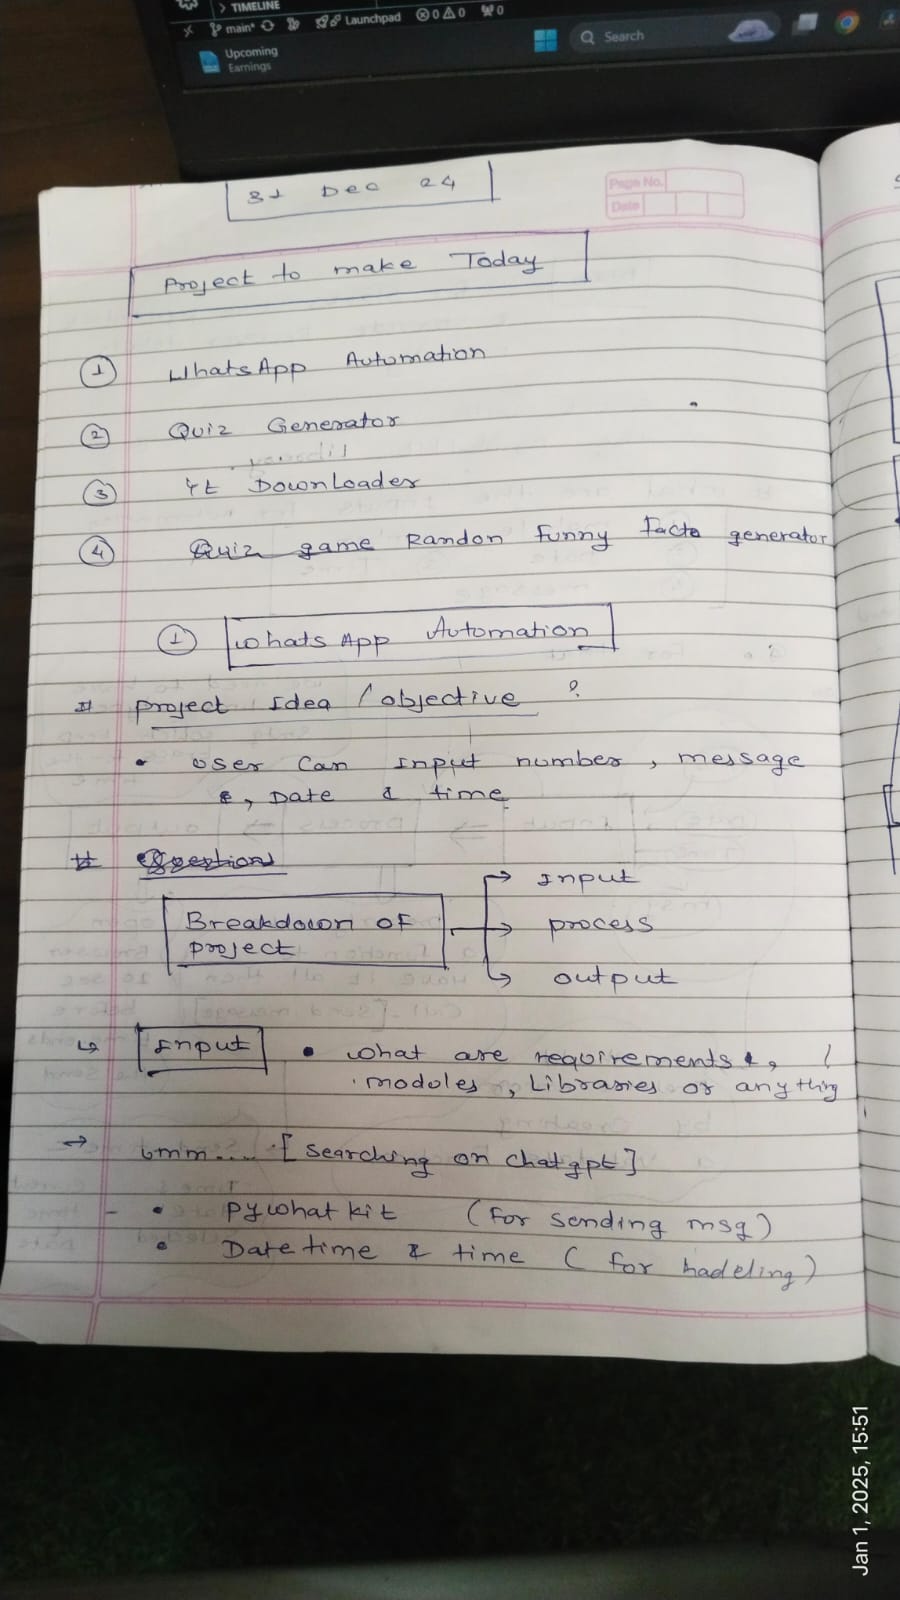 > TIMELINE
main* Launchpad 0 0 0
Upcoming
Earnings
Search
31 Dec 24
Page No.
Date
Project to make Today
① WhatsApp Automation
② Quiz Generator
③ Yt Downloader
④ Quiz game Randon Funny Facts generator
① WhatsApp Automation
# Project Idea / objective ?
• User Can Input number, message
, Date & time
# Question
Breakdown of
project
→ Input
→ process
→ output
↳ Input • what are requirements,
modules, Libraries or anything
→ umm.... [searching on chatgpt]
- • pywhatkit (for sending msg)
• Datetime & time (for hadeling)
Jan 1, 2025, 15:51